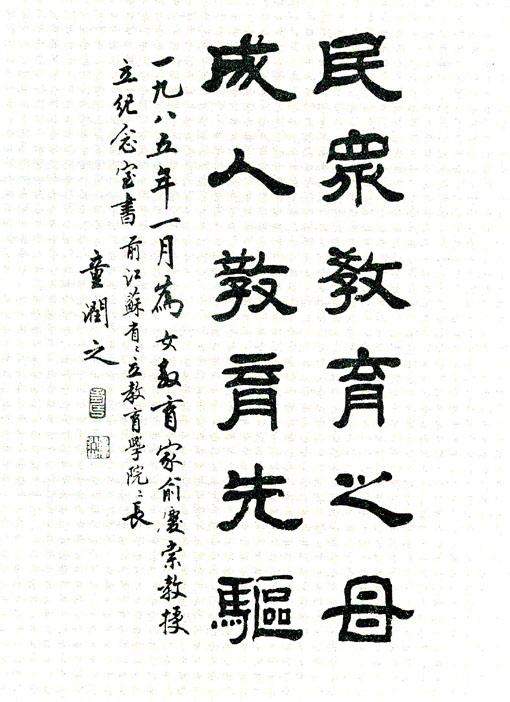 民眾教育之母
成人教育先驅
一九八五年一月為女教育家俞慶棠教授
立紀念室書 前江蘇省〻立教育學院〻長
童潤之